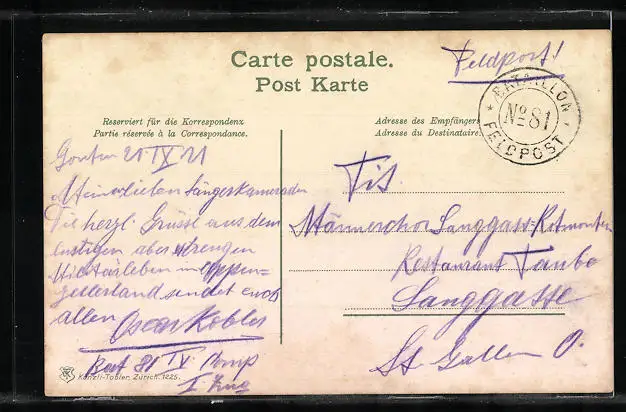 Carte postale.
Post Karte
Feldpost!
BATAILLON
No 81
FELDPOST
Reserviert für die Korrespondenz
Partie réservée à la Correspondance.
Adresse des Empfängers
Adresse du Destinataire.
21 IX 21
Meine lieben Sängerkameraden
Die herzl. Grüsse aus dem
lustigen aber strengen
Militärleben im Appen-
zellerland sendet euch
allen Oscar Kobler
Bat 81 IV. Komp
I. Zug
Tit.
Männerchor Langgass-
Restaurant Taube
Langgasse
St Gallen O.
Künzli-Tobler, Zürich. 1225.